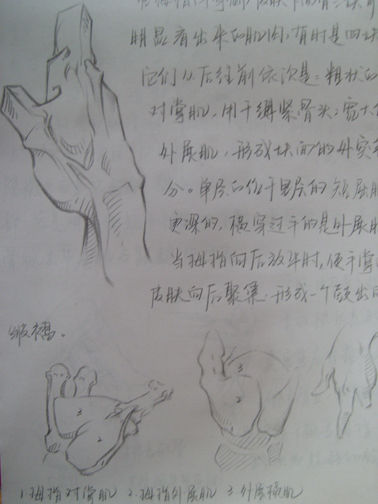 明显看出来的肌肉,有时是四块
它们从后往前依次是:粗壮的
对掌肌,用于绷紧骨头;宽大
外展肌,形成块面的外实
分。单层的位于里层的短屈肌
更深的,横穿过手的是外展肌
当拇指向后放平时,使手掌
皮肤向后聚集,形成一个鼓出的
皱褶。
3
2
3
2
1.拇指对掌肌 2.拇指外展肌 3.外展拇肌